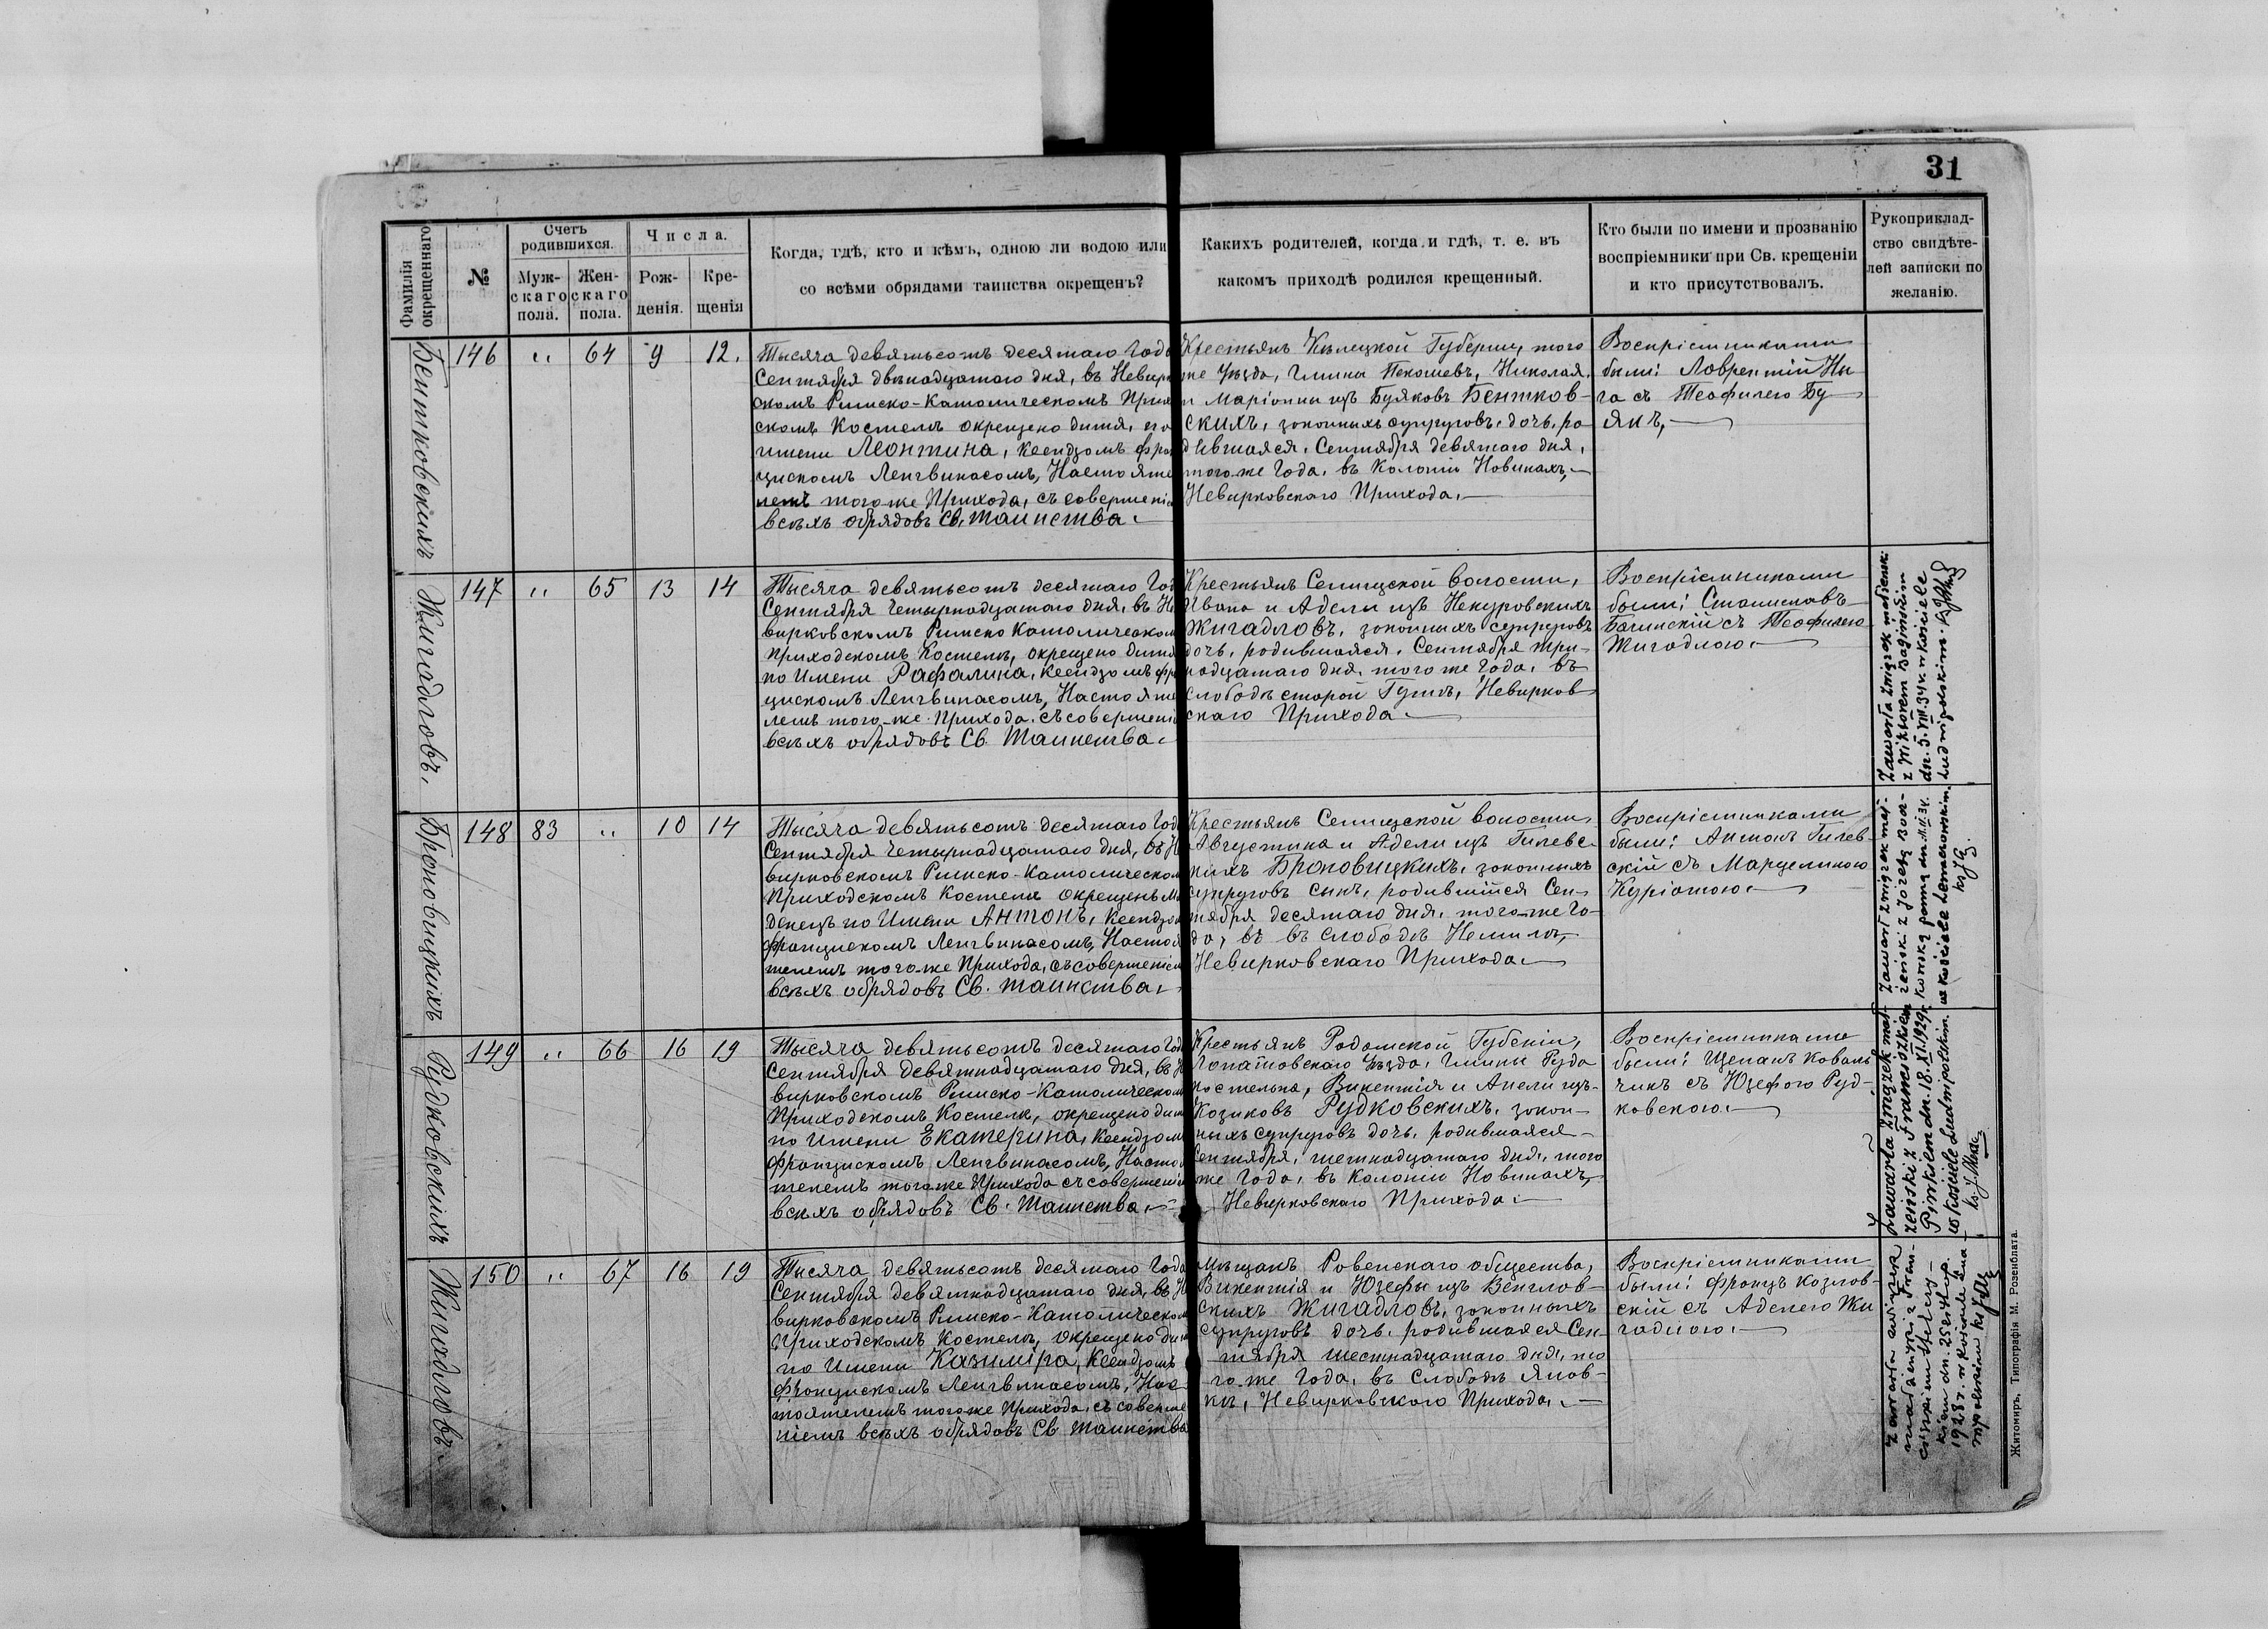 31
Фамилія окрещеннаго
№
Счетъ родившихся.
Мужскаго пола.
Женскаго пола.
Числа.
Рожденія.
Крещенія
Когда, гдѣ, кто и кѣмъ, одною ли водою или
со всѣми обрядами таинства окрещенъ?
Какихъ родителей, когда и гдѣ, т. е. въ
какомъ приходѣ родился крещенный.
Кто были по имени и прозванію
воспріемники при Св. крещеніи
и кто присутствовалъ.
Рукоприклад-
ство свидѣте-
лей записки по
желанію.
Бентковскихъ
146 " 64 9 12.
Тысяча девятьсотъ десятаго Года
Сентября двѣнадцатаго дня, въ Невир
скомъ Римско-Католическомъ Прих
скомъ Костелѣ окрещено дитя, по
имени Леонтина, Ксендзомъ Фран
цискомъ Ленгвинасомъ, Настояте
лемъ того же Прихода, съ совершенія
всѣхъ обрядовъ Св. Таинства.
Крестьянъ Кѣлецкой Губерніи, того
же Уѣзда, Гмины Пекошевъ, Николая
и Маріанны изъ Буяковъ Бентков-
скихъ, законныхъ супруговъ, дочь, ро
дившаяся, Сентября девятаго дня,
того же Года, въ Колоніи Новинахъ,
Невирковскаго Прихода.
Воспріемниками
были: Лаврентій Ны
га съ Теофилею Бу
якъ,
Жигадловъ.
147 " 65 13 14
Тысяча девятьсотъ десятаго Год
Сентября четырнадцатаго дня, въ Не
вирковскомъ Римско Католическом
Приходскомъ Костелѣ, окрещено дитя
по Имени Рафалина, Ксендзомъ Фр
цискомъ Ленгвинасомъ, Настояте
лемъ того-же Прихода, съ совершені
всѣхъ обрядовъ Св. Таинства.
Крестьянъ Селищской волости,
Ивана и Адели изъ Некуровскихъ
Жигадловъ, законныхъ супруговъ
дочь, родившаяся, Сентября три-
надцатаго дня, того же Года, въ
Слободѣ старой Гутѣ, Невирков
скаго Прихода
Воспріемниками
были: Станиславъ
Багинскій съ Теофилею
Жигадлою.
Zawarła związek małżeński
z Wiktorem Bagińskim
dn. 5.VIII.34 r. w kościele
Ludwipolskim.
Броновицкихъ
148 83 " 10 14
Тысяча девятьсотъ десятаго Год
Сентября четырнадцатаго дня, въ Н
вирковскомъ Римско-Католическом
Приходскомъ Костелѣ окрещенъ Мл
денецъ по Имени Антонъ, Ксендзом
Францискомъ Ленгвинасомъ, Настоя
телемъ того-же Прихода, съ совершеніем
всѣхъ обрядовъ Св. Таинства.
Крестьянъ Селищской волости,
Августина и Адели изъ Гилевс-
кихъ Броновицкихъ, законныхъ
супруговъ сынъ, родившійся Сен-
тября десятаго дня, того-же Го-
да, въ въ слободѣ Немили,
Невирковскаго Прихода.
Воспріемниками
были: Антонъ Гилев-
скій съ Марцелиною
Куріатою.
Zawarł związek mał-
żeński z Józefą
Рудковскихъ
149 " 66 16 19
Тысяча девятьсотъ десятаго Год
Сентября девятнадцатаго дня, въ Н
вирковскомъ Римско-Католическом
Приходскомъ Костелѣ, окрещено дит
по Имени Екатерина, Ксендзом
Францискомъ Ленгвинасомъ, Насто
телемъ того же Прихода съ совершені
всѣхъ обрядовъ Св. Таинства.
Крестьянъ Радомской Губеніи,
Опатовскаго Уѣзда, Гмины Руда
костельна, Викентія и Анели изъ
Козиковъ Рудковскихъ, закон-
ныхъ супруговъ дочь, родившаяся
Сентября, шестнадцатаго дня, того
же Года, въ Колоніи Новинахъ,
Невирковскаго Прихода.
Воспріемниками
были: Щепанъ Коваль
чикъ съ Юзефою Руд-
ковскою.
Zawarła związek mał-
żeński z Franciszkiem
dn. 18.XI.1929 r.
w Kościele Ludwipolskim.
Жигадловъ.
150 " 67 16 19
Тысяча девятьсотъ десятаго Года
Сентября девятнадцатаго дня, въ Н
вирковскомъ Римско-Католическом
Приходскомъ Костелѣ, окрещено дит
по Имени Казиміра, Ксендзомъ
Францискомъ Ленгвинасомъ, Нас
тоятелемъ того же Прихода, съ соверше
ніемъ всѣхъ обрядовъ Св Таинства
Мѣщанъ Ровенскаго общества,
Викентія и Юзефы изъ Венглов-
скихъ Жигадловъ, законныхъ
супруговъ дочь, родившаяся Сен-
тября шестнадцатаго дня, то
го-же Года, въ Слободѣ Янов-
кѣ, Невирковскаго Прихода.
Воспріемниками
были: Францъ Козлов-
скій съ Аделею Жи
гадлою.
1928 r. w kościele
Житомиръ, Типографія М. Розенблата